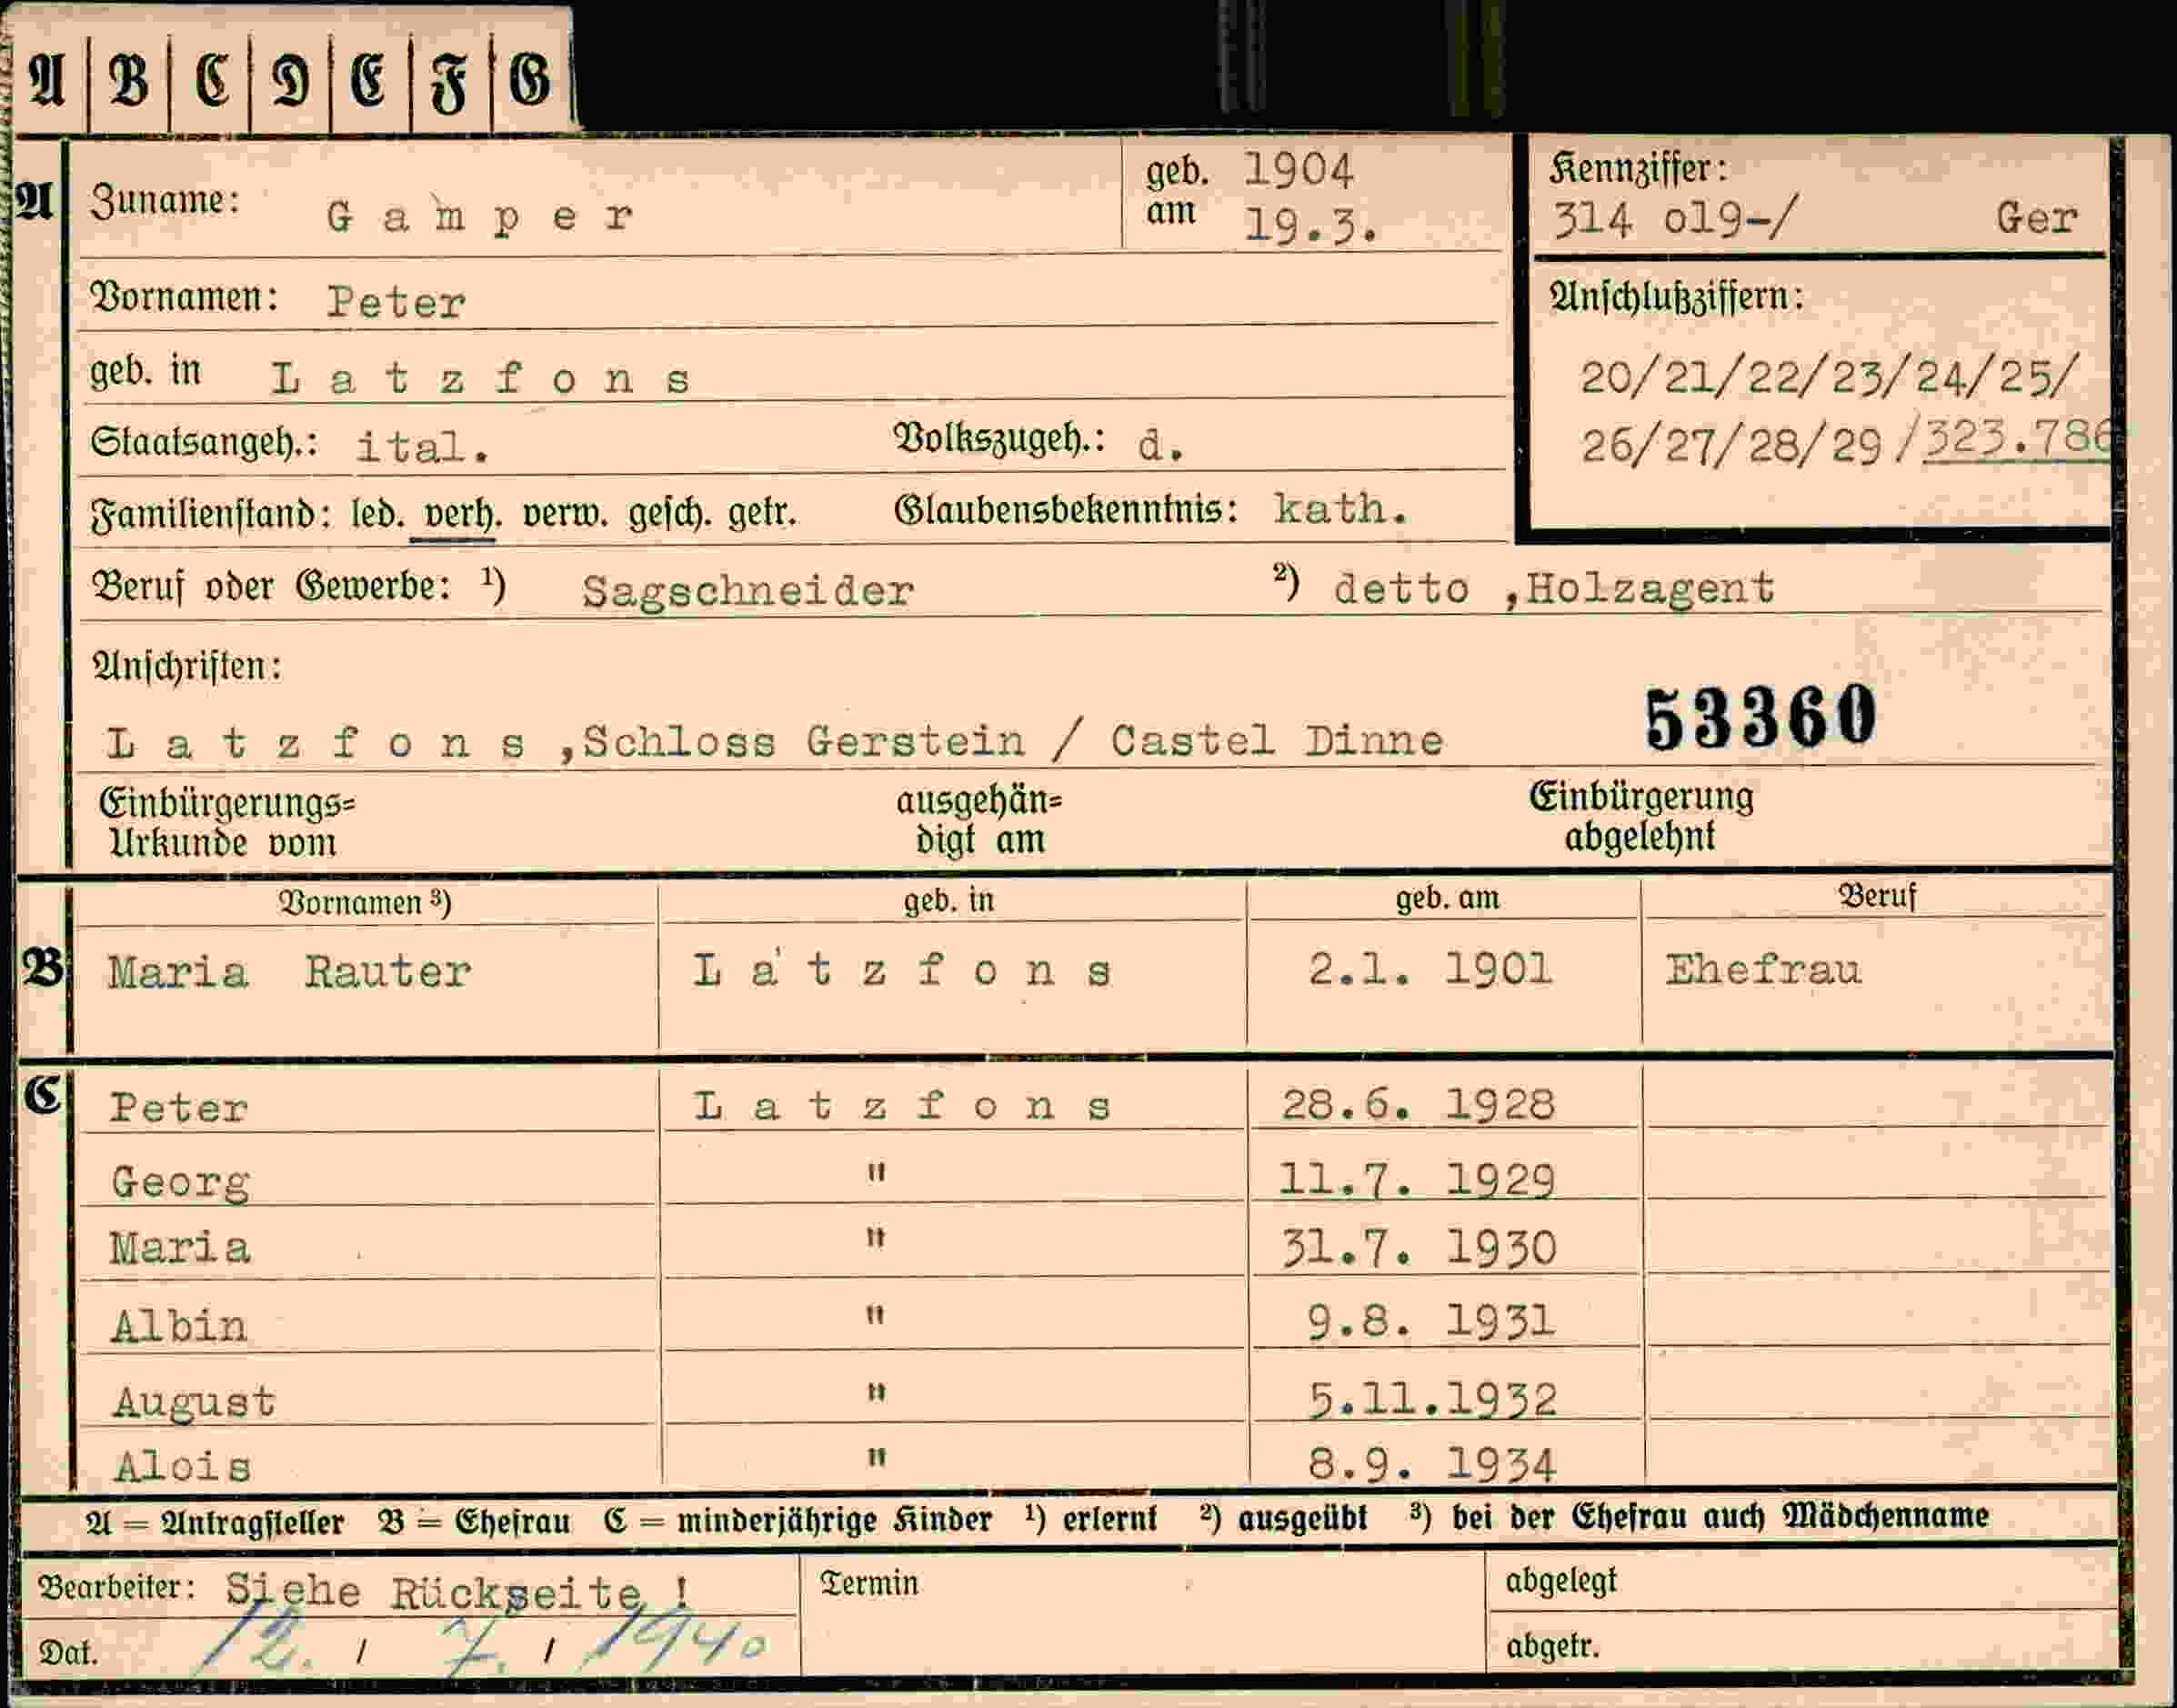 A B C D E F G
A Zuname: Gamper geb. am 1904 19.3. Kennziffer: 314 o19-/ Ger
Vornamen: Peter Anschlußziffern:
geb. in Latzfons 20/21/22/23/24/25/
Staatsangeh.: ital. Volkszugeh.: d. 26/27/28/29/323.786
Familienstand: led. verh. verw. gesch. getr. Glaubensbekenntnis: kath.
Beruf oder Gewerbe: ¹) Sagschneider ²) detto ,Holzagent
Anschriften:
53360
Latzfons ,Schloss Gerstein / Castel Dinne
Einbürgerungs= ausgehän= Einbürgerung
Urkunde vom digt am abgelehnt
Vornamen ³) geb. in geb. am Beruf
B Maria Rauter Latzfons 2.1. 1901 Ehefrau
C Peter Latzfons 28.6. 1928
Georg " 11.7. 1929
Maria " 31.7. 1930
Albin " 9.8. 1931
August " 5.11.1932
Alois " 8.9. 1934
A = Antragsteller B = Ehefrau C = minderjährige Kinder ¹) erlernt ²) ausgeübt ³) bei der Ehefrau auch Mädchenname
Bearbeiter: Siehe Rückseite ! Termin abgelegt
Dat. 12. / 7. / 1940 abgetr.